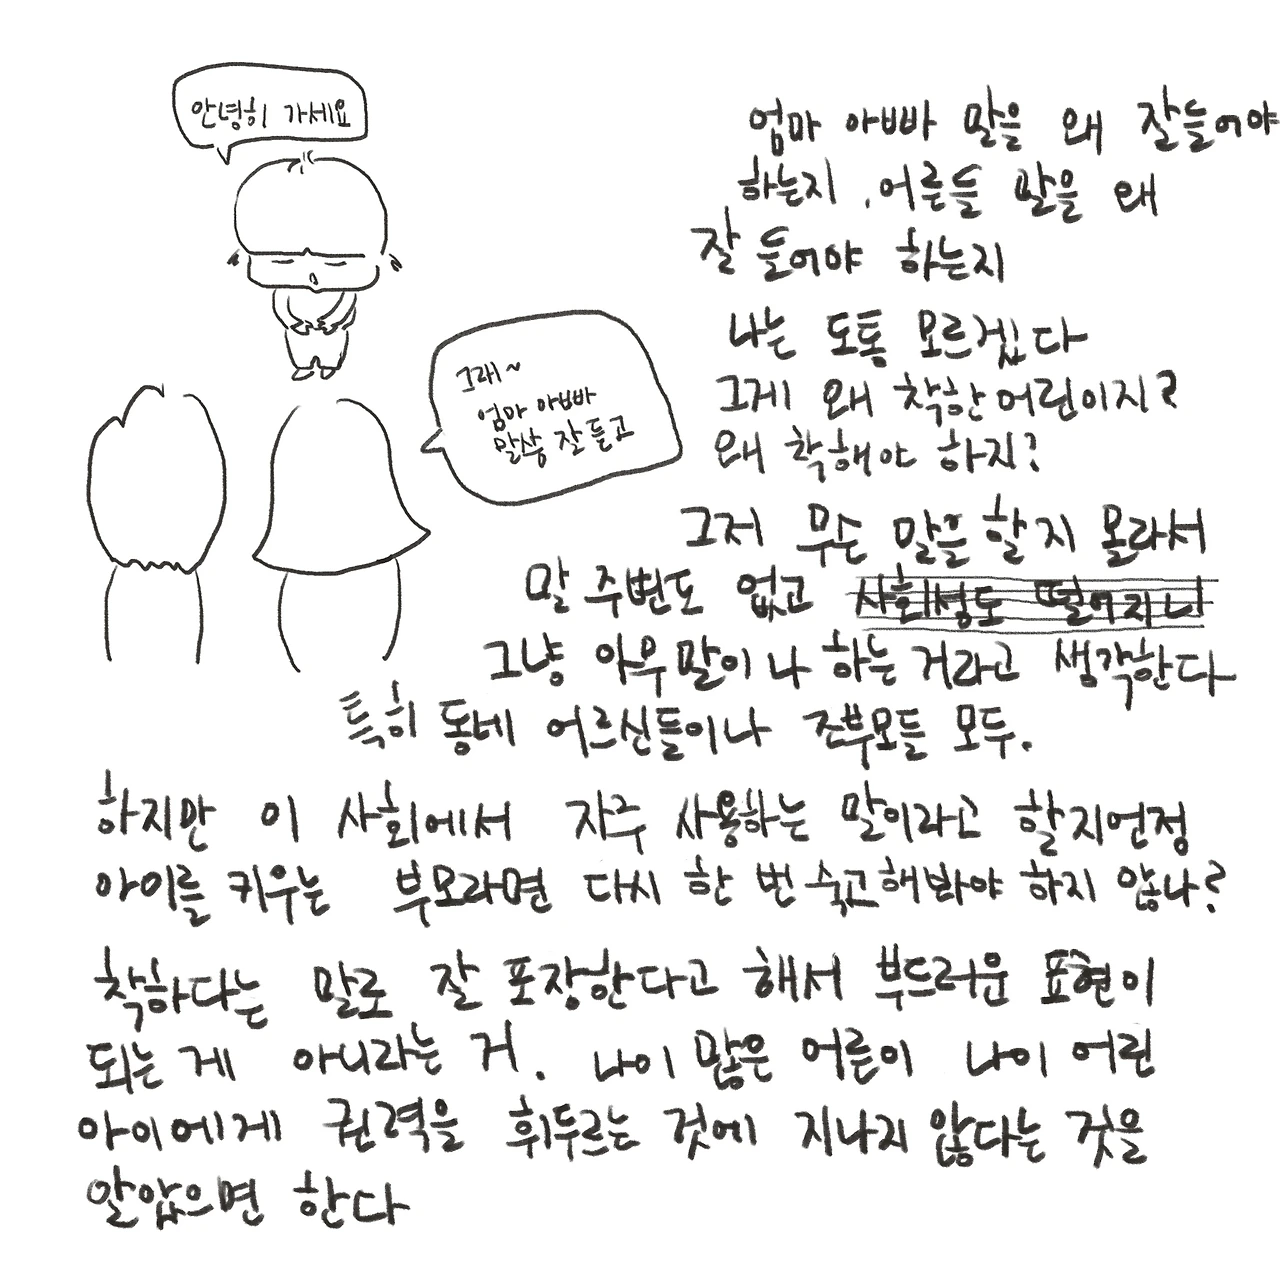 안녕히 가세요
그래~
엄마 아빠
말씀 잘 듣고
엄마 아빠 말을 왜 잘들어야
하는지, 어른들 말을 왜
잘 들어야 하는지
나는 도통 모르겠다
그게 왜 착한어린이지?
왜 착해야 하지?
그저 무슨 말을 할지 몰라서
말 주변도 없고 사회성도 떨어지니
그냥 아무말이나 하는거라고 생각한다
특히 동네 어르신들이나 조부모들 모두.
하지만 이 사회에서 자주 사용하는 말이라고 할지언정
아이를 키우는 부모라면 다시 한 번 숙고해봐야 하지 않나?
착하다는 말로 잘 포장한다고 해서 부드러운 표현이
되는 게 아니라는 거. 나이 많은 어른이 나이 어린
아이에게 권력을 휘두르는 것에 지나지 않다는 것을
알았으면 한다